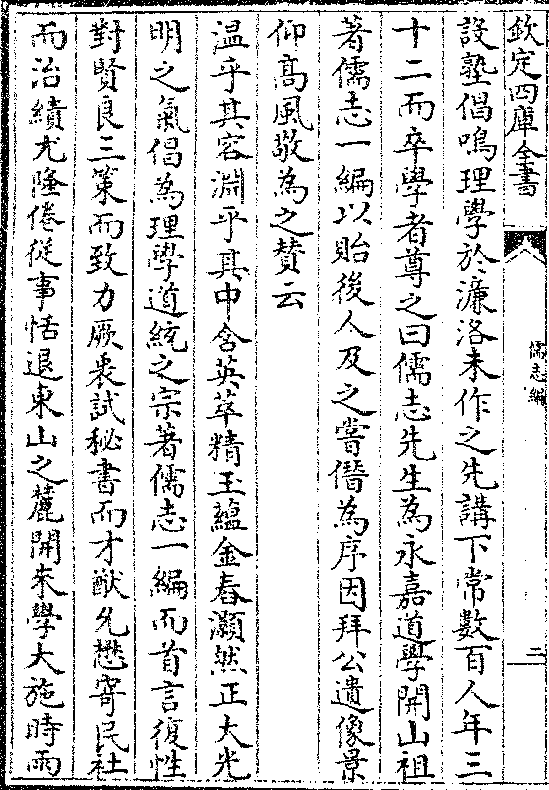 欽定四庫全書
儒志編
二
設塾倡鳴理學於濂洛未作之先講下常數百人年三
十二而卒學者尊之曰儒志先生為永嘉道學開山祖
著儒志一編以貽後人及之嘗僭為序因拜公遺像景
仰髙風敬為之贊云
温乎其容淵乎其中含英萃精玉蘊金舂灝然正大光
明之氣倡為理學道統之宗著儒志一編而首言復性
對賢良三策而致力厥衷試秘書而才猷允懋寄民社
而治績尤隆倦從事恬退東山之麓開來學大施時雨